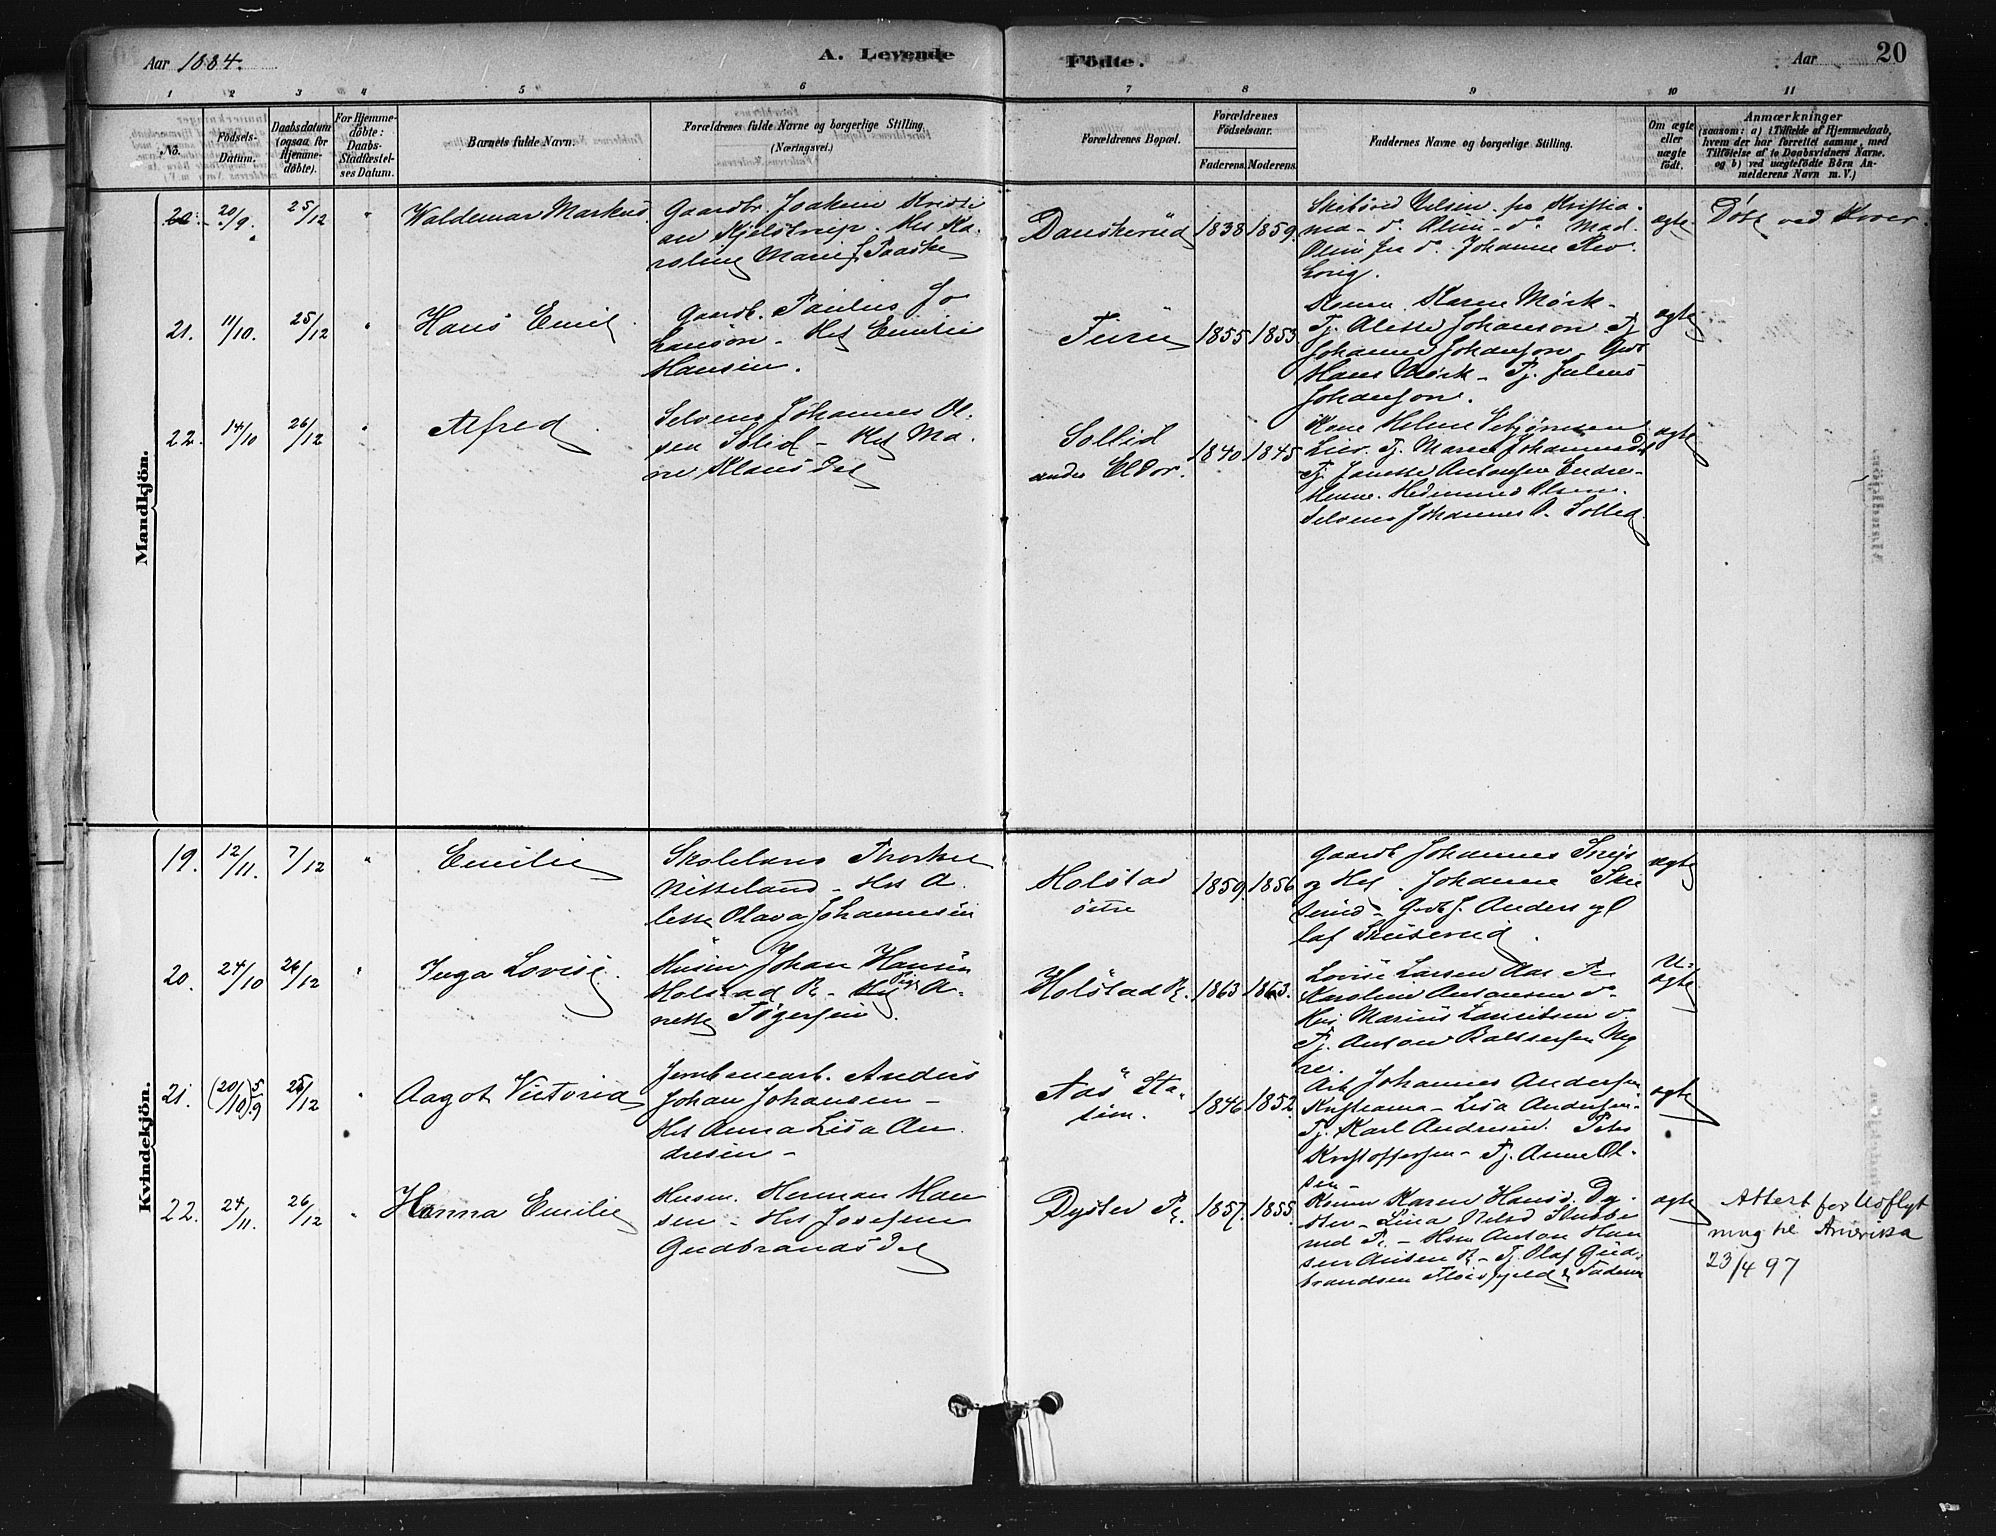 Aar 1884.
A. Levende
Fødte.
Aar
20
1 2 3 4 5 6 7 8 9 10 11
No.
Fødsels-
Datum.
Daabsdatum
(ogsaa for
Hjemme-
døbte).
For Hjemme-
døbte:
Daabs-
Stadfæstel-
ses Datum.
Barnets fulde Navn.
Forældrenes fulde Navne og borgerlige Stilling.
(Næringsvei.)
Forældrenes Bopæl.
Forældrenes
Fødselsaar.
Faderens. Moderens.
Faddernes Navne og borgerlige Stilling.
Om ægte
eller
uægte
født.
Anmærkninger
(saasom: a) i Tilfælde af Hjemmedaab,
hvem der har forrettet samme, med
Tilføielse af to Daabsvidners Navne,
og b) ved uægtefødte Børn An-
melderens Navn m. V.)
Mandkjön.
20. 20/9. 25/12 " Waldemar Markus
Gaardbr. Joakim Kristi
an Kjelstrup. Hst Ka-
roline Marie
Danskerud 1838 1859.
Nilsen fra Kristia-
nia - do Olsen - do Mad.
Olsen fra do. Johanne
ægte
Døbt ved Kroer.
21. 11/10. 25/12 " Hans Emil
Gaardb. Paulus Jo
hansøn - Hst Emilie
Hansen.
1855 1853
Karen Mørk -
Tj. Alette Johanson Tj
Johanne Johanson. Gdb
Hans Mørk - Tj. Julius
Johanson.
ægte
22. 14/10 26/12 " Alfred
Selvens Johannes Ol-
sen Solid - Hst Ma-
ren Klausdt
Sollid
under Eldor.
1840 1845
Kone Helene
Lier. Tj. Maren Johannesd
Tj. Janette Antonsen
Olsen.
Selvens Johannes O. Sollid
ægte
Kvindekjön.
19. 12/11. 7/12 " Emilie
Skolelærer
Nitteland - Hst A-
lette Olava Johannesen
Holstad
østre
1859. 1856
Gaardb Johannes
og Hst. Johanne
Anders og O
laf
ægte
20. 24/10 26/12 " Inga Lovise.
Husm Johan Hansen
Holstad Pl. - Pige A-
nette
Holstad Pl. 1863 1863.
Lovise Larsen Aas Pr
Karoline Antonsen do
Marius Lauritsen do
Tj. Anton
U-
ægte
21. (20/10) 5/9 25/12 " Aagot Victoria
Jernbanearb. Anders
Johan Johansen -
Hst Anna Lisa An
dresen -
Aas Sta-
tion.
1846 1852.
Arb Johannes Andersen
Kristiania - Lisa Andersen.
Tj. Karl Andresen. Peter
Kristoffersen - Tj. Anne Ol-
sen -
ægte
22. 24/11. 26/12 " Hanna Emilie
Husm. Herman Han
sen - Hst Josefine
Gudbrandsdt
Dyster Pl. 1857. 1855.
Karen Hansd. Dy-
ster - Lina Nilsd Stubbe
rud Pl. - Anton Han
sen Pl - Tj. Olaf Gud-
brandsen & Faderen
ægte
Attest for Udflyt
ning til Amerika
23/4 97